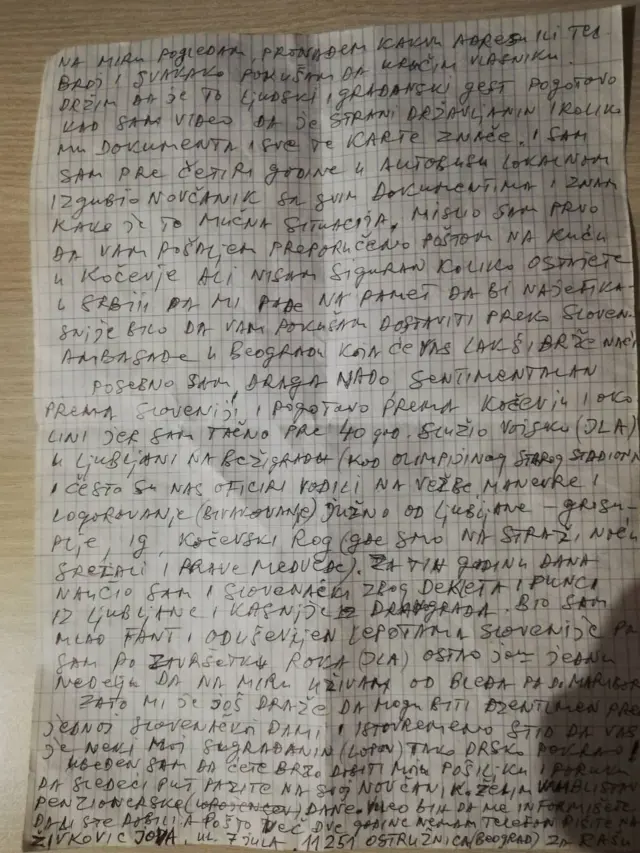 NA MIRU POGLEDAM, PRONAĐEM KAKVU ADRESU ILI TEL
BROJ I SVAKAKO POKUŠAM DA URUČIM VLASNIKU.
DRŽIM DA JE TO LJUDSKI I GRAĐANSKI GEST POGOTOVO
KAD SAM VIDEO DA JE STRANI DRŽAVLJANIN I KOLIKO
MU DOKUMENTA I SVE TE KARTE ZNAČE. I SAM
SAM PRE ČETIRI GODINE U AUTOBUSU LOKALNOM
IZGUBIO NOVČANIK SA SVIM DOKUMENTIMA I ZNAM
KAKO JE TO MUČNA SITUACIJA. MISLIO SAM PRVO
DA VAM POŠALJEM PREPORUČENO POŠTOM NA KUĆU
U KOČEVJE ALI NISAM SIGURAN KOLIKO OSTAJETE
U SRBIJI DA MI PADE NA PAMET DA BI NAJEFIKA-
SNIJE BILO DA VAM POKUŠAM DOSTAVITI PREKO SLOVEN.
AMBASADE U BEOGRADU KOJA ĆE VAS LAKŠE I BRŽE NAĆI
POSEBNO SAM, DRAGA NADO, SENTIMENTALAN
PREMA SLOVENIJI I POGOTOVO PREMA KOČEVJU I OKO
LINI JER SAM TAČNO PRE 40 GOD. SLUŽIO VOJSKU (JLA)
U LJUBLJANI NA BEŽIGRADU (KOD OLIMPIJINOG STAROG STADION
I ČESTO SU NAS OFICIRI VODILI NA VEŽBE MANEVRE I
LOGOROVANJE (BIVAKOVANJE) JUŽNO OD LJUBLJANE - GROSU-
PLJE, IG, KOČEVSKI ROG (GDE SMO NA STRAŽI, NOĆU
SRETALI I PRAVE MEDVEDE). ZA TIH GODINU DANA
NAUČIO SAM I SLOVENAČKI ZBOG DEKLETA I PUNCI
IZ LJUBLJANE I KASNIJE IZ DRAVOGRADA. BIO SAM
MLAD FANT I ODUŠEVLJEN LEPOTAMA SLOVENIJE PA
SAM PO ZAVRŠETKU ROKA (JLA) OSTAO JOŠ JEDNU
NEDELJU DA NA MIRU UŽIVAM OD BLEDA PA DO MARIBOR
ZATO MI JE JOŠ DRAŽE DA MOGU BITI DŽENTLMEN PRE
JEDNOJ SLOVENAČKOJ DAMI I ISTOVREMENO STID DA VAS
JE NEKI MOJ SUGRAĐANIN (LOPOV) TAKO DRSKO POKRAO!
UVEREN SAM DA ĆETE BRZO DOBITI MOJU POŠILJKU I PORUKU
DA SLEDEĆI PUT PAZITE NA SVOJ NOVČANIK. ŽELIM VAM
PENZIONERSKE (UPOJENCEV) DANE. VOLEO BIH DA ME INFORMIŠETE
DA LI STE DOBILI A POŠTO VEĆ DVE GODINE NEMAM TELEFON PIŠITE NA
ŽIVKOVIĆ JOVA, UL. 7 JULA, 11251 OSTRUŽNICA (BEOGRAD)